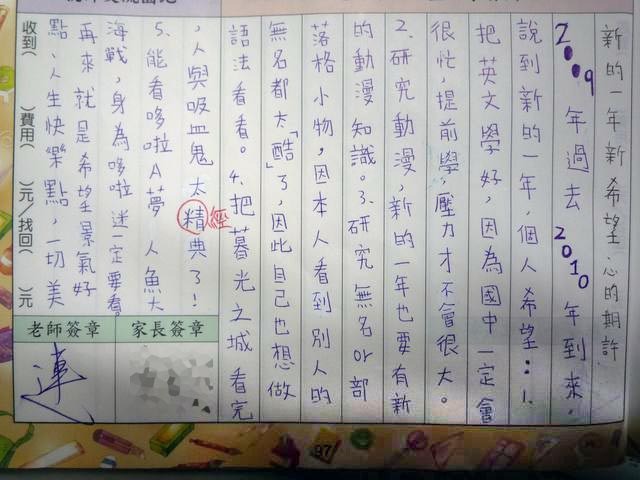 新的一年新希望心的期許
2009年過去2010年到來。
說到新的一年,個人希望:1.
把英文學好,因為國中一定會
很忙,提前學,壓力才不會很大。
2.研究動漫,新的一年也要有新
的動漫知識。3.研究無名or部
落格小物,因本人看到別人的
無名都太「酷」了,因此自己也想做
語法看看。4.把暮光之城看完
,人與吸血鬼太精典了!
經
5.能看哆啦A夢 人魚大
海戰,身為哆啦迷一定要看
再來就是希望景氣好
點、人生快樂點,一切美
收到( )費用( )元/找回( )元
家長簽章
老師簽章
連
97